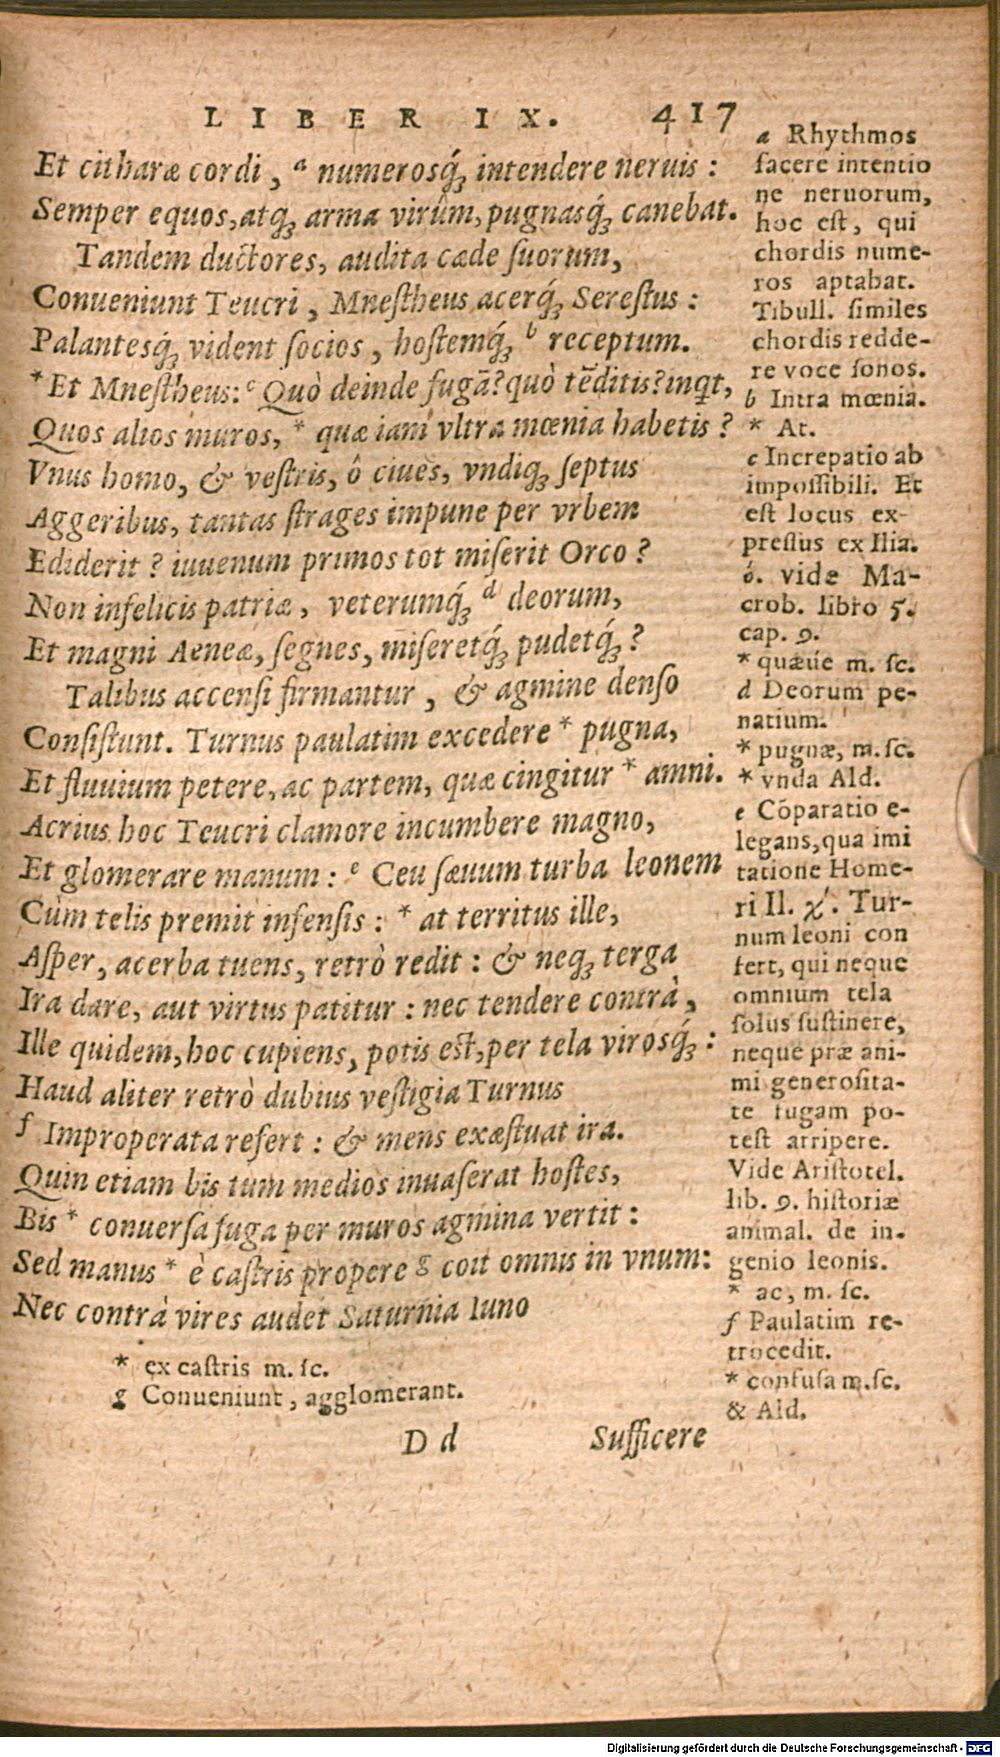 LIBER IX. 417
Et citharæ cordi, a numerosq́ꝫ intendere neruis :
Semper equos, atqꝫ arma virûm, pugnasq́ꝫ canebat.
Tandem ductores, audita cæde ſuorum,
Conueniunt Teucri, Mneſtheus acerq́ꝫ Sereſtus :
Palantesq́ꝫ vident ſocios, hoſtemq́ꝫ b receptum.
*Et Mneſtheus: c Quò deinde fugā? quò tēditis? inqt,
Quos alios muros, * quæ iam vltra mœnia habetis ?
Vnus homo, & veſtris, ô ciues, vndiqꝫ ſeptus
Aggeribus, tantas ſtrages impune per vrbem
Ediderit ? iuuenum primos tot miſerit Orco ?
Non infelicis patriæ, veterumq́ꝫ d deorum,
Et magni Aeneæ, ſegnes, miſeretq́ꝫ pudetq́ꝫ ?
Talibus accenſi firmantur, & agmine denſo
Conſiſtunt. Turnus paulatim excedere * pugna,
Et fluuium petere, ac partem, quæ cingitur * amni.
Acrius hoc Teucri clamore incumbere magno,
Et glomerare manum : e Ceu ſæuum turba leonem
Cùm telis premit infenſis : * at territus ille,
Aſper, acerba tuens, retrò redit : & neqꝫ terga
Ira dare, aut virtus patitur : nec tendere contrà,
Ille quidem, hoc cupiens, potis eſt, per tela virosq́ꝫ :
Haud aliter retrò dubius veſtigia Turnus
f Improperata refert : & mens exæſtuat ira.
Quin etiam bis tum medios inuaſerat hoſtes,
Bis * conuerſa fuga per muros agmina vertit :
Sed manus * è caſtris propere g coit omnis in vnum:
Nec contrà vires audet Saturnia Iuno
* ex caſtris m. ſc.
g Conueniunt, agglomerant.
D d Sufficere
a Rhythmos
facere intentio
ne neruorum,
hoc eſt, qui
chordis nume-
ros aptabat.
Tibull. ſimiles
chordis redde-
re voce ſonos.
b Intra mœnia.
* At.
c Increpatio ab
impoſſibili. Et
eſt locus ex-
preſſus ex Ilia.
ó. vide Ma-
crob. libro 5.
cap. 9.
* quæue m. ſc.
d Deorum pe-
natium.
* pugnæ, m. ſc.
* vnda Ald.
e Cōparatio e-
legans, qua imi
tatione Home-
ri Il. χ'. Tur-
num leoni con
fert, qui neque
omnium tela
ſolus ſuſtinere,
neque præ ani-
mi generoſita-
te fugam po-
teſt arripere.
Vide Ariſtotel.
lib. 9. hiſtoriæ
animal. de in-
genio leonis.
* ac, m. ſc.
f Paulatim re-
trocedit.
* confuſa m. ſc.
& Ald.
Digitalisierung gefördert durch die Deutsche Forschungsgemeinschaft - DFG